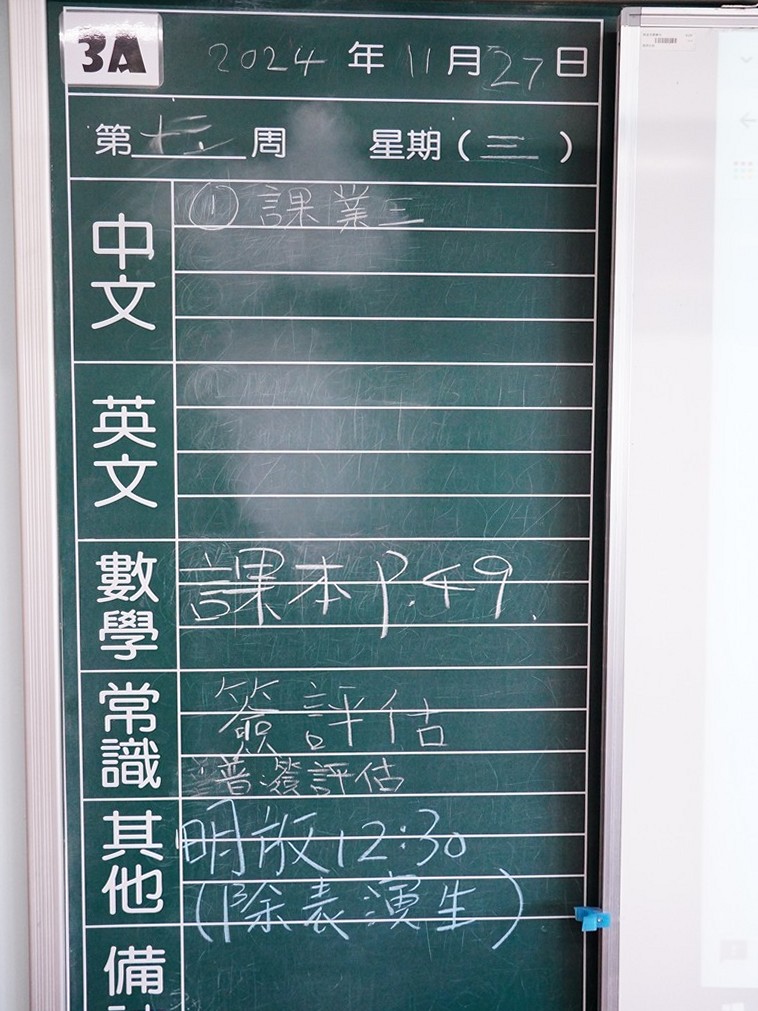 3A 2024年11月27日
第十三周 星期（三）
中文 ① 課業三
英文
數學 課本 P.49.
常識 簽評估
普 簽評估
其他 明放12:30
(除表演生)
備